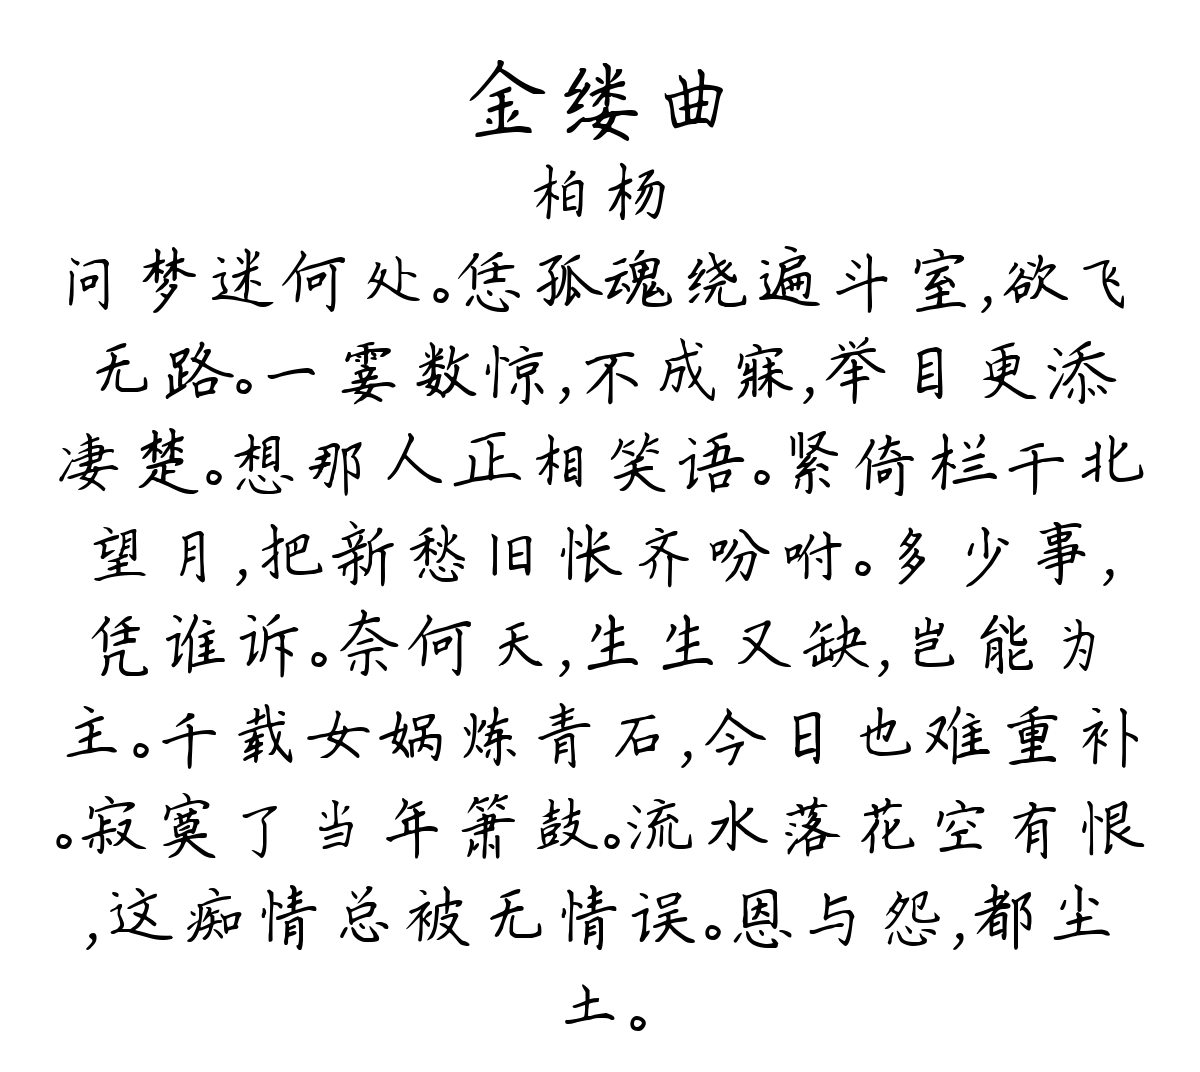 金缕曲
柏杨
问梦迷何处。恁孤魂绕遍斗室,欲飞
无路。一霎数惊,不成寐,举目更添
凄楚。想那人正相笑语。紧倚栏干北
望月,把新愁旧怅齐吩咐。多少事,
凭谁诉。奈何天,生生又缺,岂能为
主。千载女娲炼青石,今日也难重补
。寂寞了当年箫鼓。流水落花空有恨
,这痴情总被无情误。恩与怨,都尘
土。